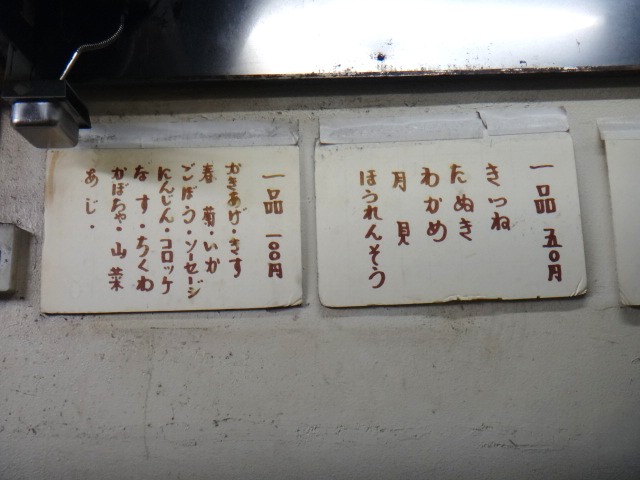 一品 五〇円
きつね
たぬき
わかめ
月見
ほうれんそう
一品 一〇〇円
かきあげ・きす
春菊・いか
ごぼう・ソーセージ
にんじん・コロッケ
なす・ちくわ
かぼちゃ・山菜
あじ・